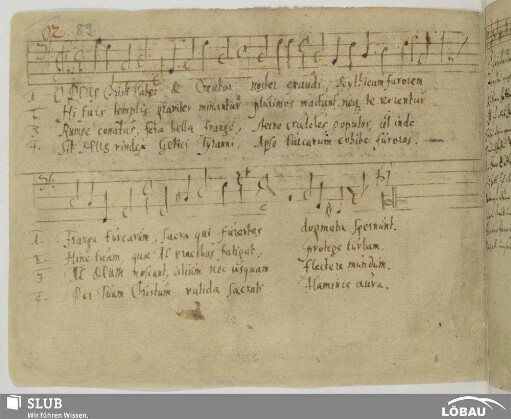 82 82
1. O DEUS Christi Pater & Creator noster exaudi, Scythicum furorem
2. Hi tuis templis graviter minantur plurimos mactant, neq, te verentur
3. Rumpe conatus, fera bella frange, Sterne crudeles populos, ut inde
4. Sit DEUS vindex Getici Tyranni, Turcarum cohibe furores.
1. Frange Turcarum, sacra qui furentes dogmata spernunt.
2. Hinc tuam, quae Te precibus fatigat, protege turbam.
3. Te DEUM noscant, alium nec usquam flectere mundum.
4. Per Tuum Christum, valida sacroti Flaminis aura.
SLUB
Wir führen Wissen.
LÖBAU